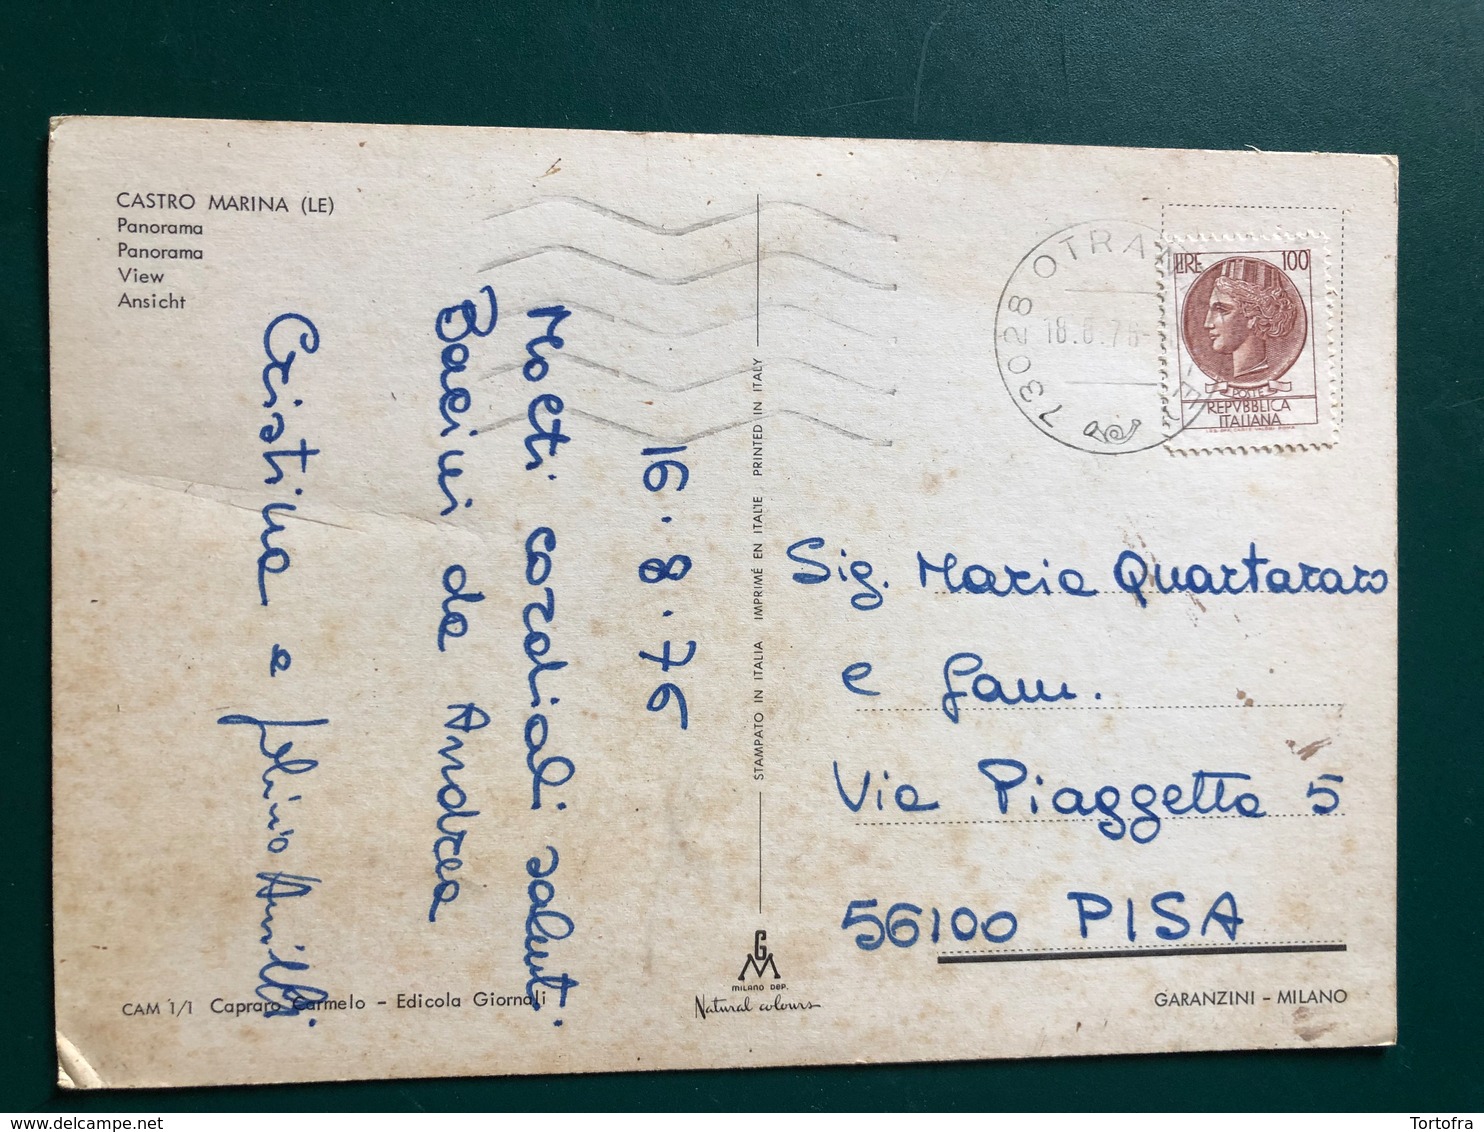 CASTRO MARINA (LE)
Panorama
Panorama
View
Ansicht
16.8.76
Molti cordiali saluti.
Bacini da Andrea
Cristina e
STAMPATO IN ITALIA IMPRIMÉ EN ITALIE PRINTED IN ITALY
73028 OTRAN
LIRE 100
POSTE
REPVBBLICA
ITALIANA
Sig. Maria Quartararo
e fam.
Via Piaggetta 5
56100 PISA
GM
MILANO DEP.
Natural colours
CAM 1/1 Capraro Carmelo - Edicola Giornali
GARANZINI - MILANO
Tortofra